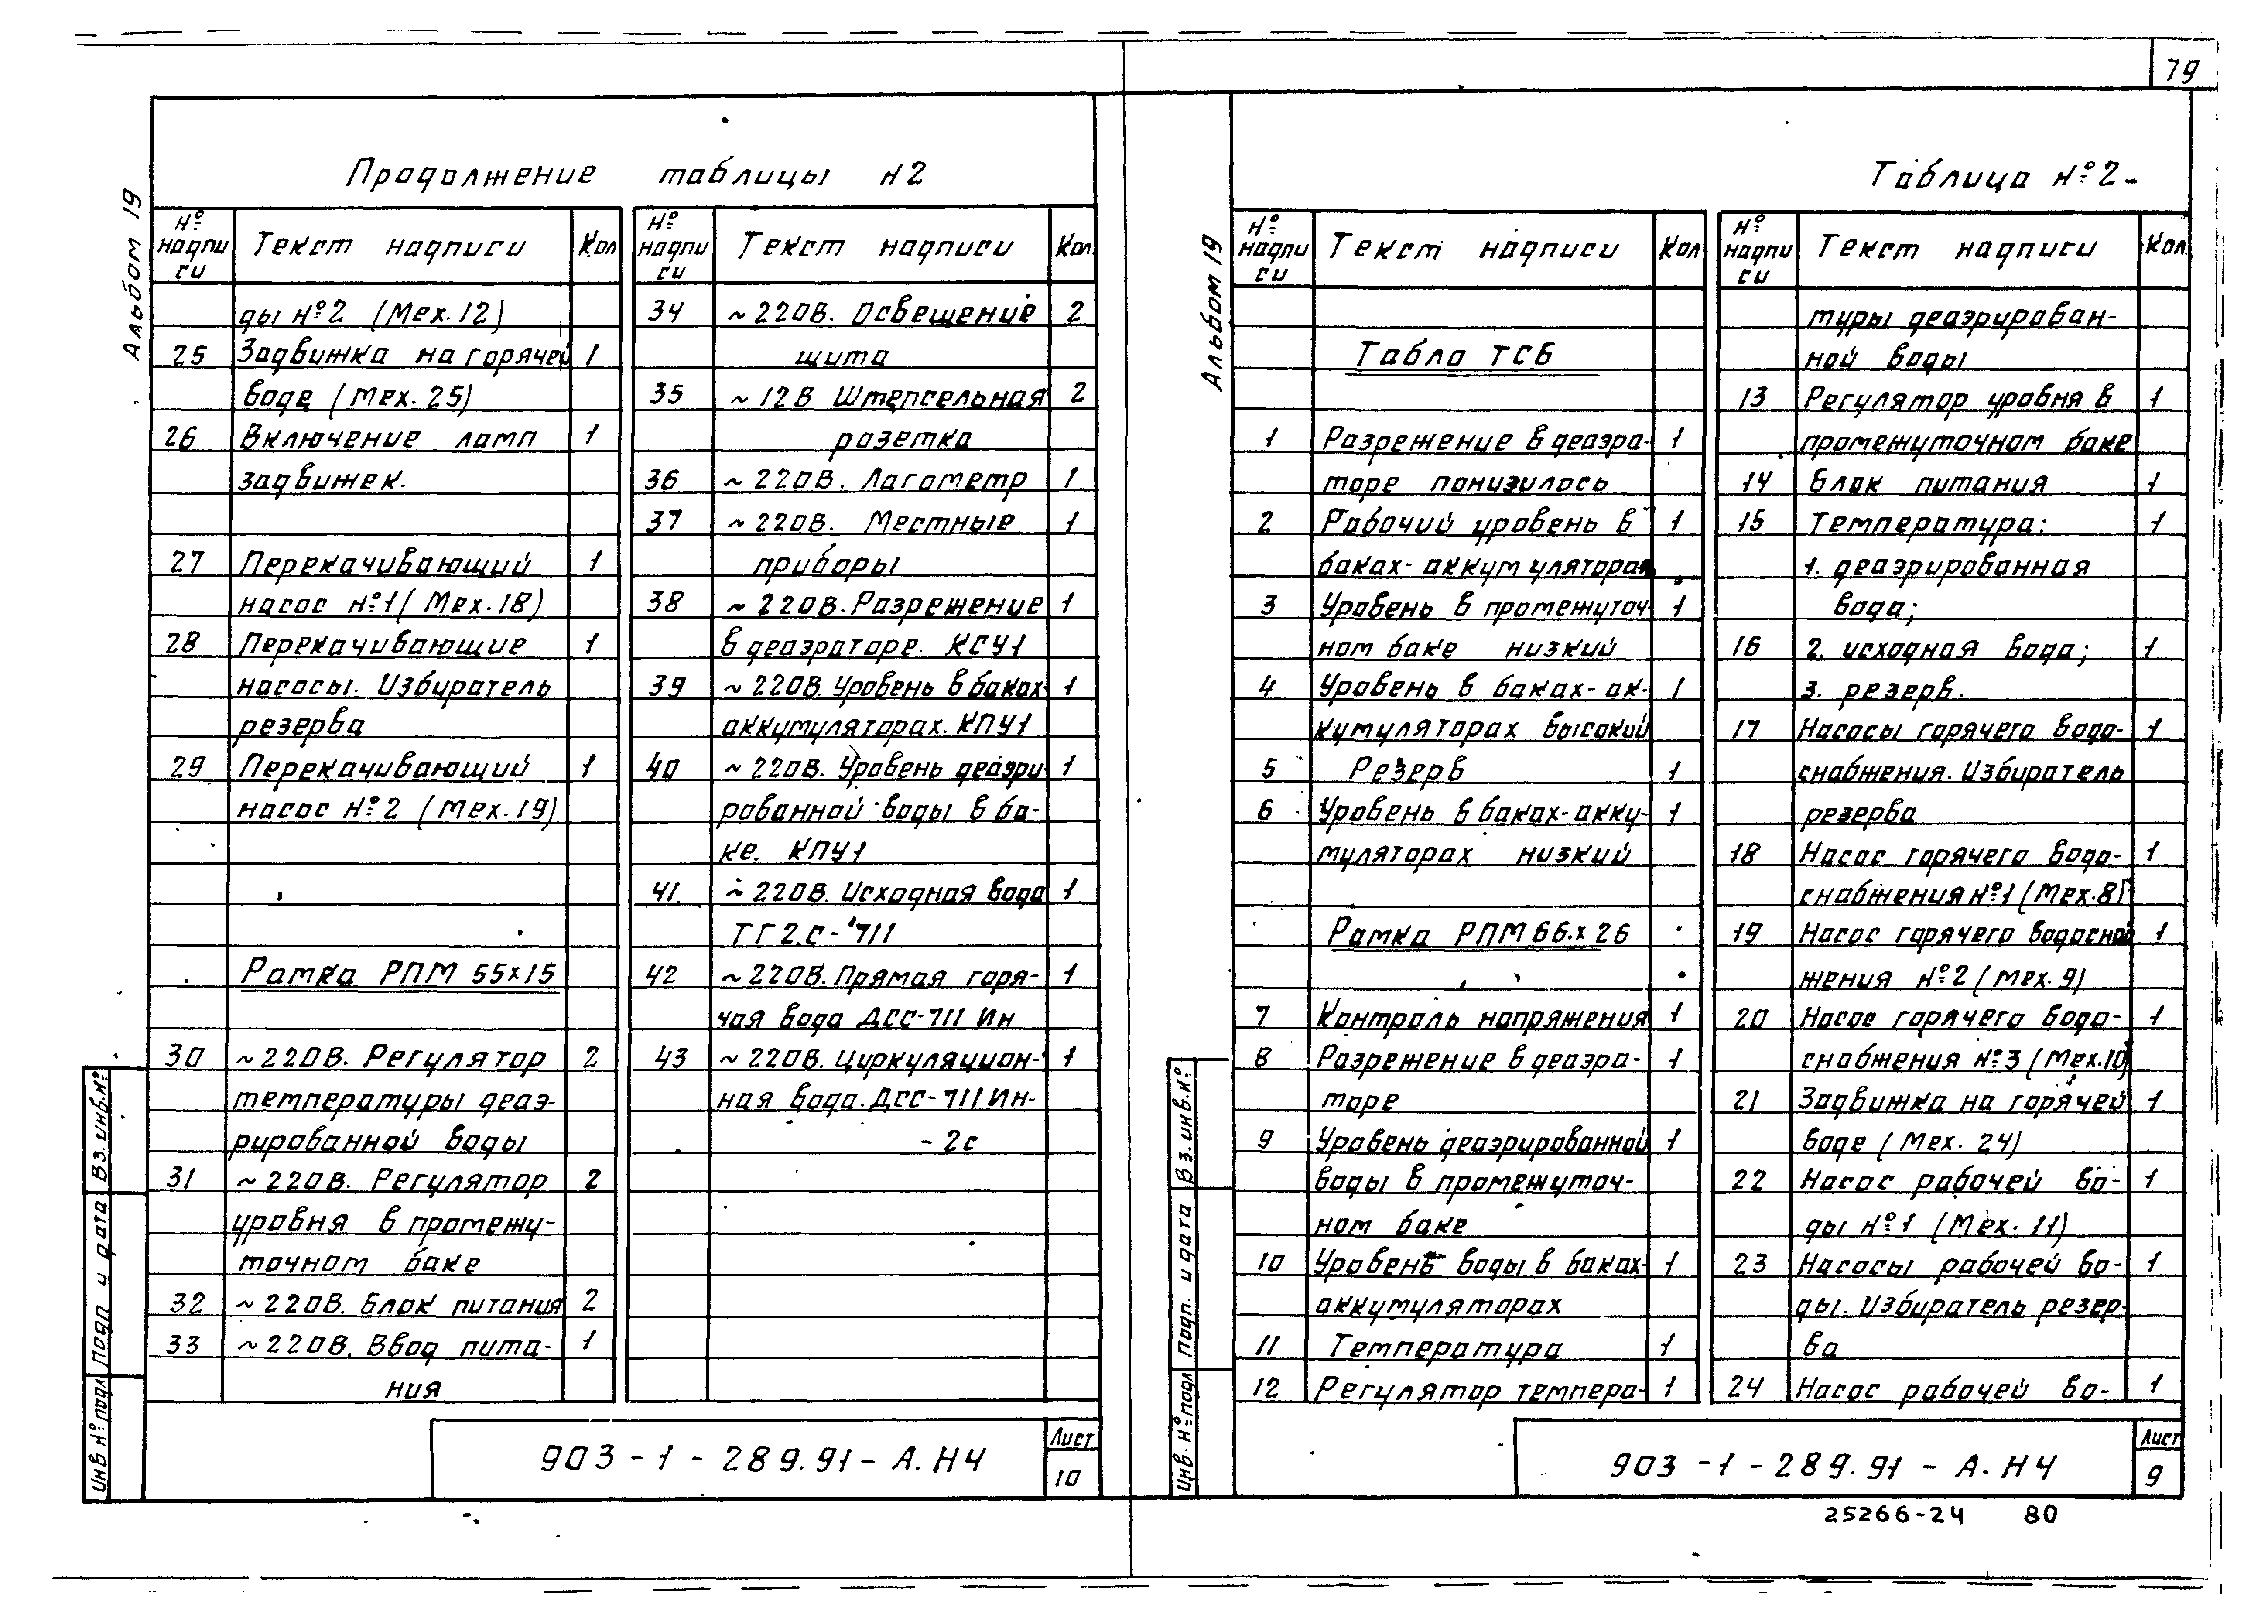 79
Альбом 19
Продолжение таблицы N2
№ надпи си | Текст надписи | Кол
ды №2 (Мех. 12)
25 Задвижка на горячей 1
воде (Мех. 25)
26 Включение ламп 1
задвижек.
27 Перекачивающий 1
насос №1 (Мех. 18)
28 Перекачивающие 1
насосы. Избиратель
резерва
29 Перекачивающий 1
насос №2 (Мех. 19)
Рамка РПМ 55х15
30 ~220В. Регулятор 2
температуры деаэ-
рированной воды
31 ~220В. Регулятор 2
уровня в промежу-
точном баке
32 ~220В. Блок питания 2
33 ~220В. Ввод пита- 1
ния
№ надпи си | Текст надписи | Кол.
34 ~220В. Освещение 2
щита
35 ~12В Штепсельная 2
розетка
36 ~220В. Логометр 1
37 ~220В. Местные 1
приборы
38 ~220В. Разрежение 1
в деаэраторе. КСУ1
39 ~220В. Уровень в баках- 1
аккумуляторах. КПУ1
40 ~220В. Уровень деаэри- 1
рованной воды в ба-
ке. КПУ1
41. ~220В. Исходная вода 1
ТГ2.С-711
42 ~220В. Прямая горя- 1
чая вода ДСС-711 Ин
43 ~220В. Циркуляцион- 1
ная вода. ДСС-711 Ин-
-2с
903-1-289.91-А.Н4
Лист
10
Инв № подл
Подп и дата
Вз. инв. №
Альбом 19
Таблица №2
№ надпи си | Текст надписи | Кол
Табло ТСБ
1 Разрежение в деаэра- 1
торе понизилось
2 Рабочий уровень в 1
баках-аккумуляторах
3 Уровень в промежуточ- 1
ном баке низкий
4 Уровень в баках-ак- 1
кумуляторах высокий
5 Резерв 1
6 Уровень в баках-акку- 1
муляторах низкий
Рамка РПМ 66х26
7 Контроль напряжения 1
8 Разрежение в деаэра- 1
торе
9 Уровень деаэрированной 1
воды в промежуточ-
ном баке
10 Уровень воды в баках- 1
аккумуляторах
11 Температура 1
12 Регулятор темпера- 1
№ надпи си | Текст надписи | Кол.
туры деаэрирован-
ной воды
13 Регулятор уровня в 1
промежуточном баке
14 Блок питания 1
15 Температура: 1
1. деаэрированная
вода;
16 2. исходная вода; 1
3. резерв.
17 Насосы горячего водо- 1
снабжения. Избиратель
резерва
18 Насос горячего водо- 1
снабжения №1 (Мех. 8)
19 Насос горячего водоснаб 1
жения №2 (Мех. 9)
20 Насос горячего водо- 1
снабжения №3 (Мех. 10)
21 Задвижка на горячей 1
воде (Мех. 24)
22 Насос рабочей во- 1
ды №1 (Мех. 11)
23 Насосы рабочей во- 1
ды. Избиратель резер-
ва
24 Насос рабочей во- 1
903-1-289.91-А.Н4
Лист
9
Инв. № подл
Подп. и дата
Вз. инв. №
25266-24 80